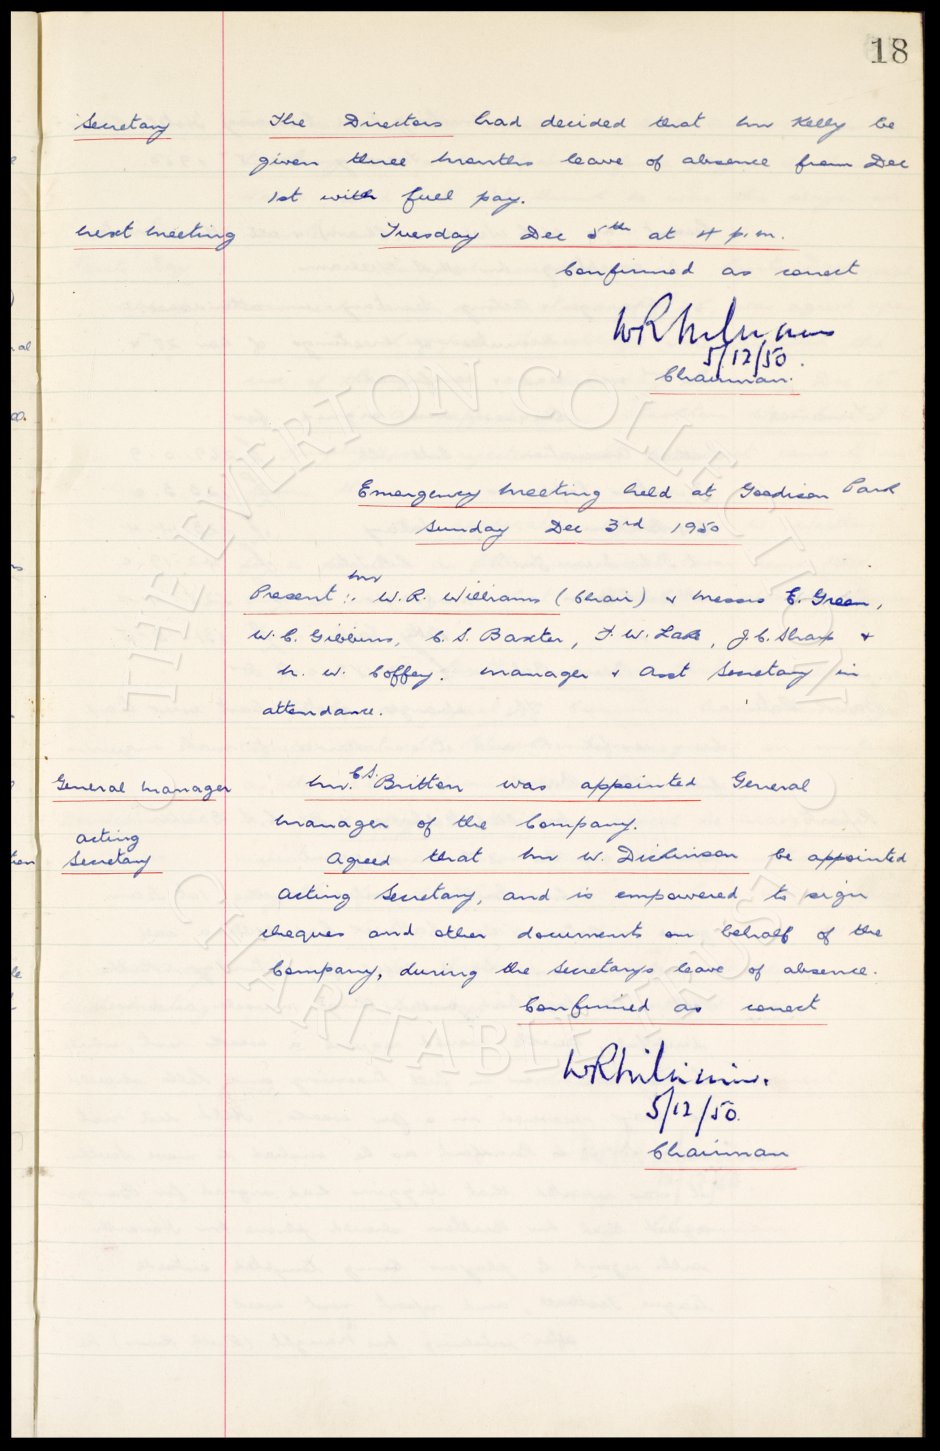 18
Secretary The Directors had decided that Mr Kelly be
given three months leave of absence from Dec
1st with full pay.
Next Meeting Tuesday Dec 5th at 4 p.m.
Confirmed as correct
W R Williams
5/12/50.
Chairman.
Emergency Meeting held at Goodison Park
Sunday Dec 3rd 1950
Present :- Mr W.R. Williams (Chair) & Messrs E. Green,
W.C. Gibbins, C.S. Baxter, F.W. Lake, J.C. Sharp &
N. W. Coffey. Manager & Asst Secretary in
attendance.
General Manager Mr. C.S. Britton was appointed General
Manager of the Company.
Acting
Secretary Agreed that Mr W. Dickinson be appointed
Acting Secretary, and is empowered to sign
cheques and other documents on behalf of the
Company, during the Secretarys leave of absence.
Confirmed as correct
W R Williams.
5/12/50.
Chairman
© THE EVERTON COLLECTION
CHARITABLE TRUST